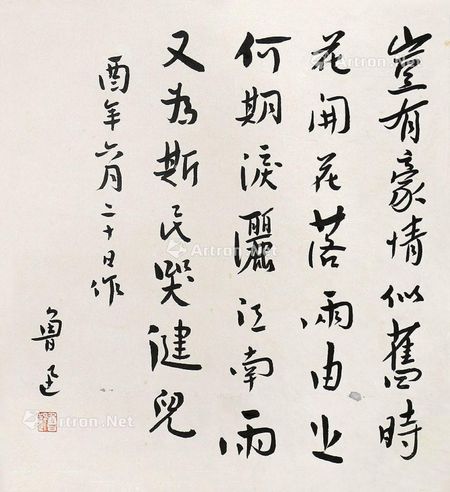 豈有豪情似舊時
花開花落兩由之
何期淚灑江南雨
又為斯民哭健兒
酉年六月二十日作
魯迅
Artron.Net
Artron.Net
Artron.Net
Artron.Net
Artron.Net